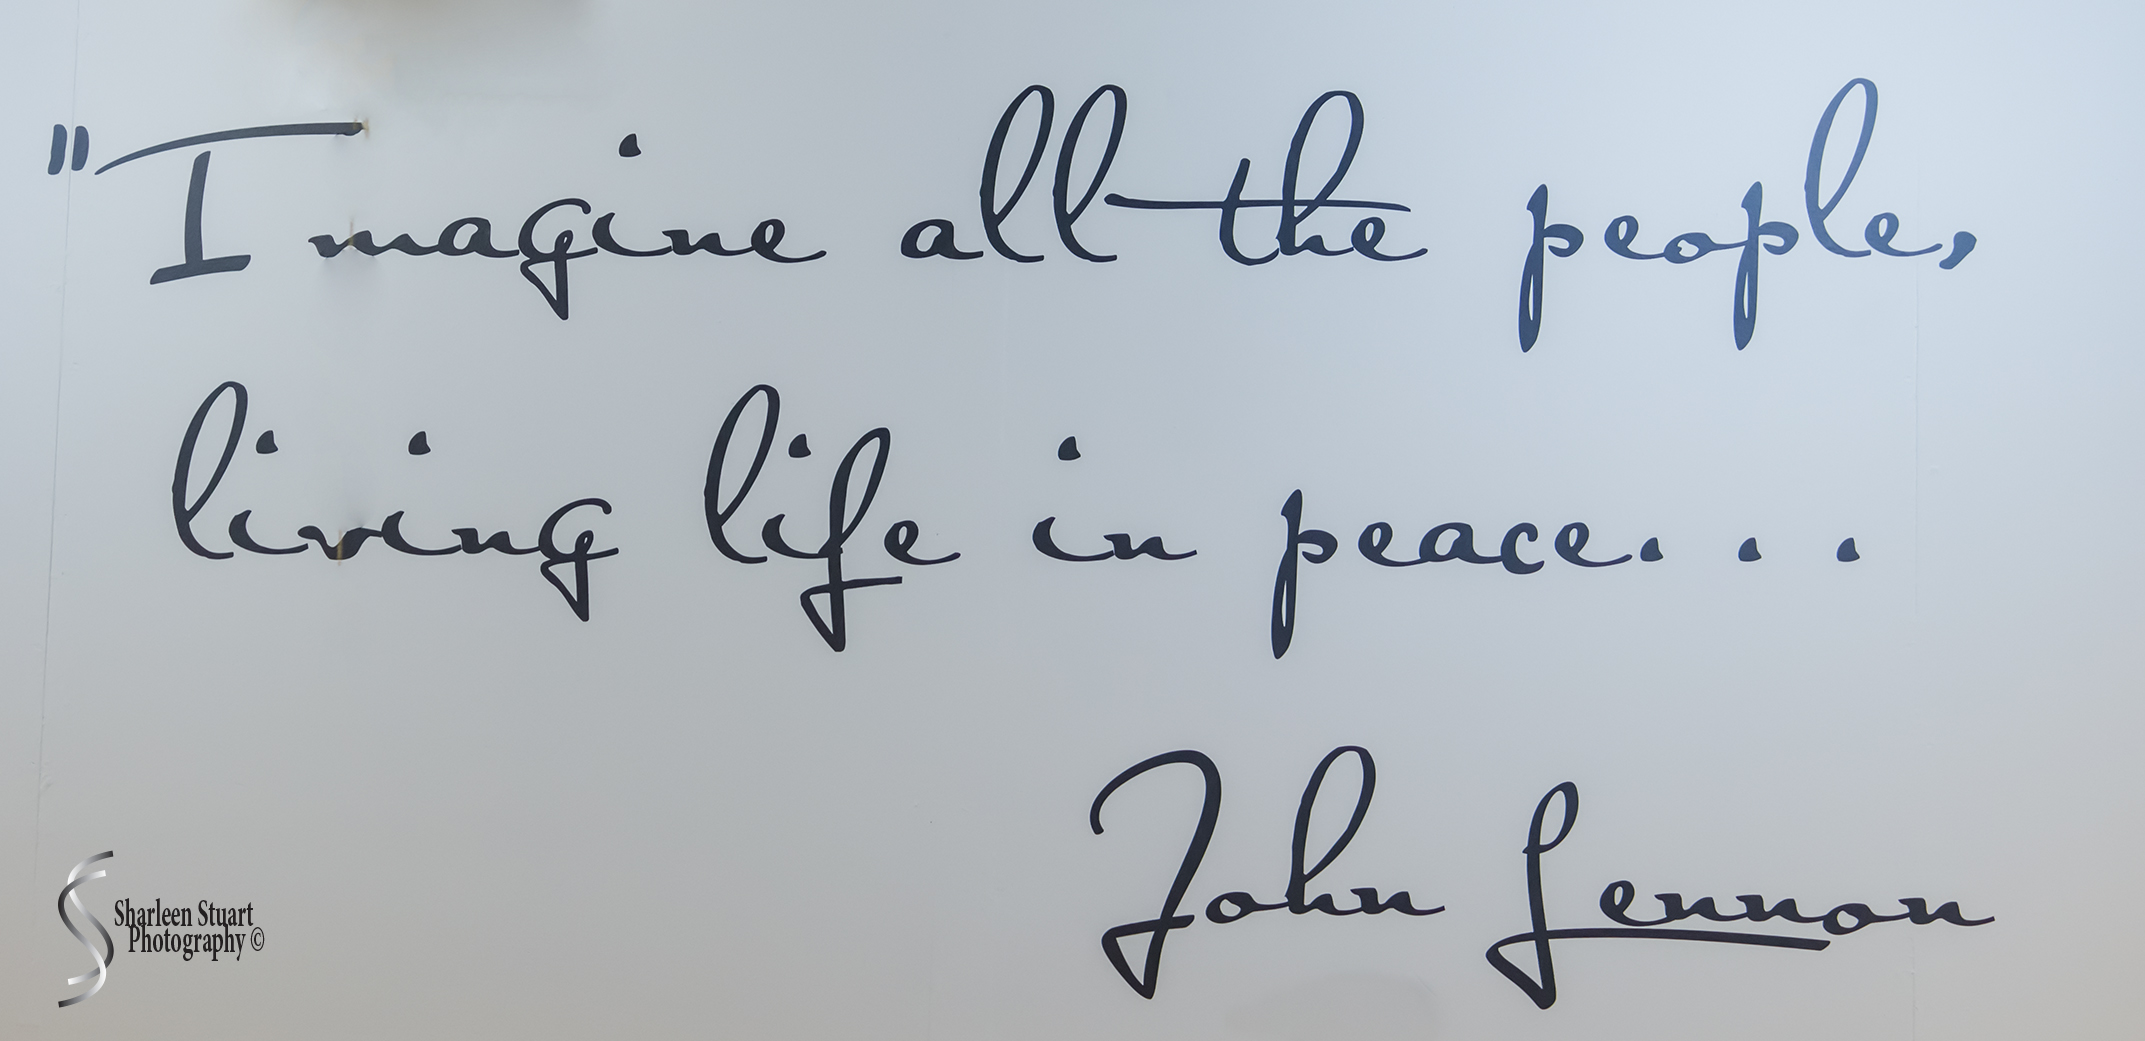 "Imagine all the people,
living life in peace...
John Lennon
Sharleen Stuart
Photography ©